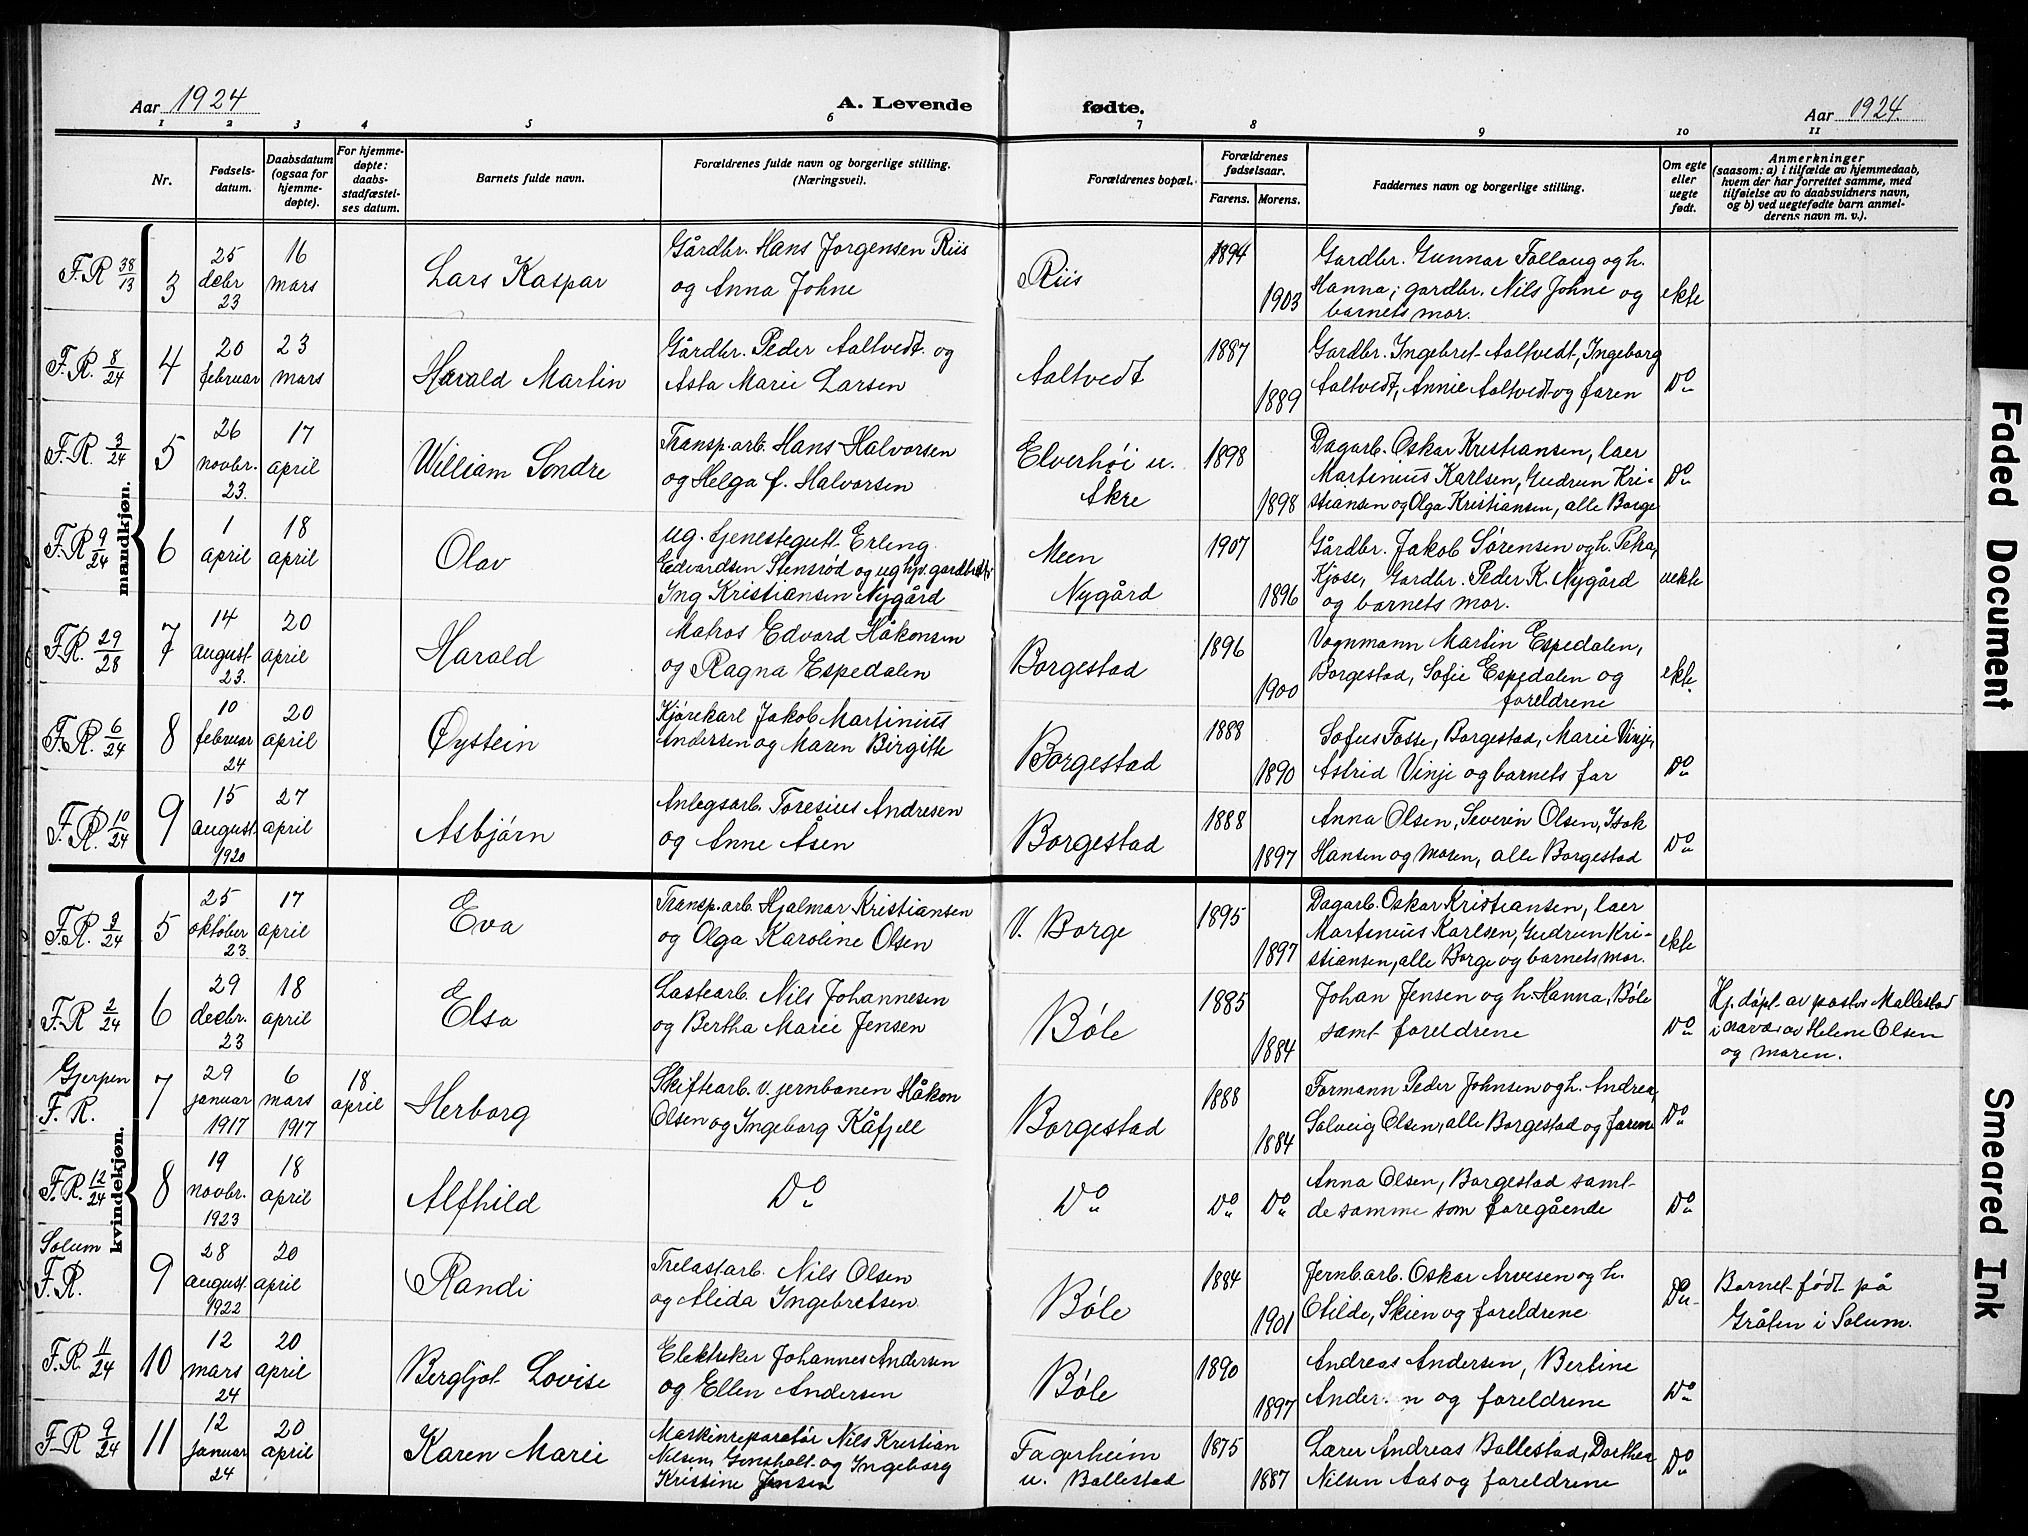 Aar 1924
A. Levende
fødte.
Aar 1924.
1 2 3 4 5 6 7 8 9 10 11
Nr.
Fødsels-
datum.
Daabsdatum
(ogsaa for
hjemme-
døpte).
For hjemme-
døpte:
daabs-
stadfæstel-
ses datum.
Barnets fulde navn.
Forældrenes fulde navn og borgerlige stilling.
(Næringsveil).
Forældrenes bopæl.
Forældrenes
fødselsaar.
Farens. Morens.
Faddernes navn og borgerlige stilling.
Om egte
eller
uegte
født.
Anmerkninger
(saasom: a) i tilfælde av hjemmedaab,
hvem der har forrettet samme, med
tilføielse av to daabsvidners navn,
og b) ved uegtefødte barn anmel-
derens navn m. v.).
mandkjøn.
F.R 38/13
3
25
decbr
23
16
mars
Lars Kaspar
Gårdbr. Hans Jørgensen Riis
og Anna Johne
Riis
1894
1903
Gardbr. Gunnar Follaug og h.
Hanna; gardbr. Nils Johne og
barnets mor.
ekte
F.R. 8/24
4
20
februar
23
mars
Harald Martin
Gårdbr. Peder Aaltvedt og
Asta Marie Larsen
Aaltvedt
1887
1889
Gardbr. Ingebret Aaltvedt, Ingeborg
Aaltvedt, Annie Aaltvedt og faren
Do
F.R. 3/24
5
26
novbr.
23.
17
april
William Sondre
Transp.arb. Hans Halvorsen
og Helga f. Halvorsen
Elverhöi u.
Åkre
1898
1898
Dagarb. Oskar Kristiansen, laer
Martinius Karlsen, Gudrun Kri-
stiansen og Olga Kristiansen, alle Borge
Do
F.R 9/24
6
1
april
18
april
Olav
ug. tjenestegutt Erling
Edvardsen Stensrød og ug hp. gardbr
Ing Kristiansen Nygård
Meen
Nygård
1907
1896
Gårdbr. Jakob Sørensen og h.
Kjose, Gardbr. Peder K. Nygård
og barnets mor.
uekte
F.R. 29/28
7
14
august
23.
20
april
Harald
Matros Edvard Håkonsen
og Ragna Espedalen
Borgestad
1896
1900
Vognmann Martin Espedalen,
Borgestad, Sofie Espedalen og
foreldrene
ekte.
F.R. 6/24
8
10
februar
24
20
april
Øystein
Kjørekarl Jakob Martinius
Andersen og Maren Birgitte
Borgestad
1888
1890
Sofus Fosse, Borgestad, Marie Vinje,
Astrid Vinje og barnets far
Do
F.R. 10/24
9
15
august.
1920
27
april
Asbjørn
Anlegsarb. Toresius Andresen
og Anne Åsen
Borgestad
1888
1897
Anna Olsen, Severin Olsen, Isak
Hansen og moren, alle Borgestad
Do
kvindekjøn.
F.R. 3/24
5
25
oktober
23
17
april
Eva
Transp.arb. Hjalmar Kristiansen
og Olga Karoline Olsen
V. Borge
1895
1897
Dagarb. Oskar Kristiansen, laer
Martinius Karlsen, Gudrun Kri-
stiansen, alle Borge og barnets mor.
ekte
F.R 2/24
6
29
decbr.
23
18
april
Elsa
Lastearb. Nils Johannesen
og Bertha Marie Jensen
Bøle
1885
1884
Johan Jensen og h. Hanna, Bøle
samt foreldrene
Do
Hj. døpt av pastor Mallestad
i nærvær av Helene Olsen
og moren.
Gjerpen
F.R.
7
29
januar
1917
6
mars
1917
18
april
Herborg
Skiftearb. v. jernbanen Håkon
Olsen og Ingeborg Kåfjell
Borgestad
1888
1884
Formann Peder Johnsen og h. Andrea,
Solveig Olsen, alle Borgestad og faren
Do
F.R. 12/24
8
19
novbr.
1923
18
april
Alfhild
Do
Do
Do
Do
Anna Olsen, Borgestad samt
de samme som foregående
Do
Solum
F.R.
9
28
august.
1922
20
april
Randi
Trelastarb. Nils Olsen
og Alida Ingebretsen
Bøle
1884
1901
Jernb.arb. Oskar Arvesen og h.
Otilde, Skien og foreldrene
Do
Barnet født på
Gråten i Solum.
F.R. 11/24
10
12
mars
24
20
april
Bergljot Lovise
Elektriker Johannes Andersen
og Ellen Andersen
Bøle
1890
1897
Andreas Andersen, Bertine
Andersen og foreldrene
Do
F.R 9/24
11
12
januar
24
20
april
Karen Marie
Maskinreparatör Nils Kristian
Nilsen, Gonsholt og Ingeborg
Kristine Jensen
Fagerheim
u. Ballestad
1875
1887
Lærer Andreas Ballestad, Dorthea
Nilsen Aas og foreldrene
Do
Faded Document
Smeared Ink